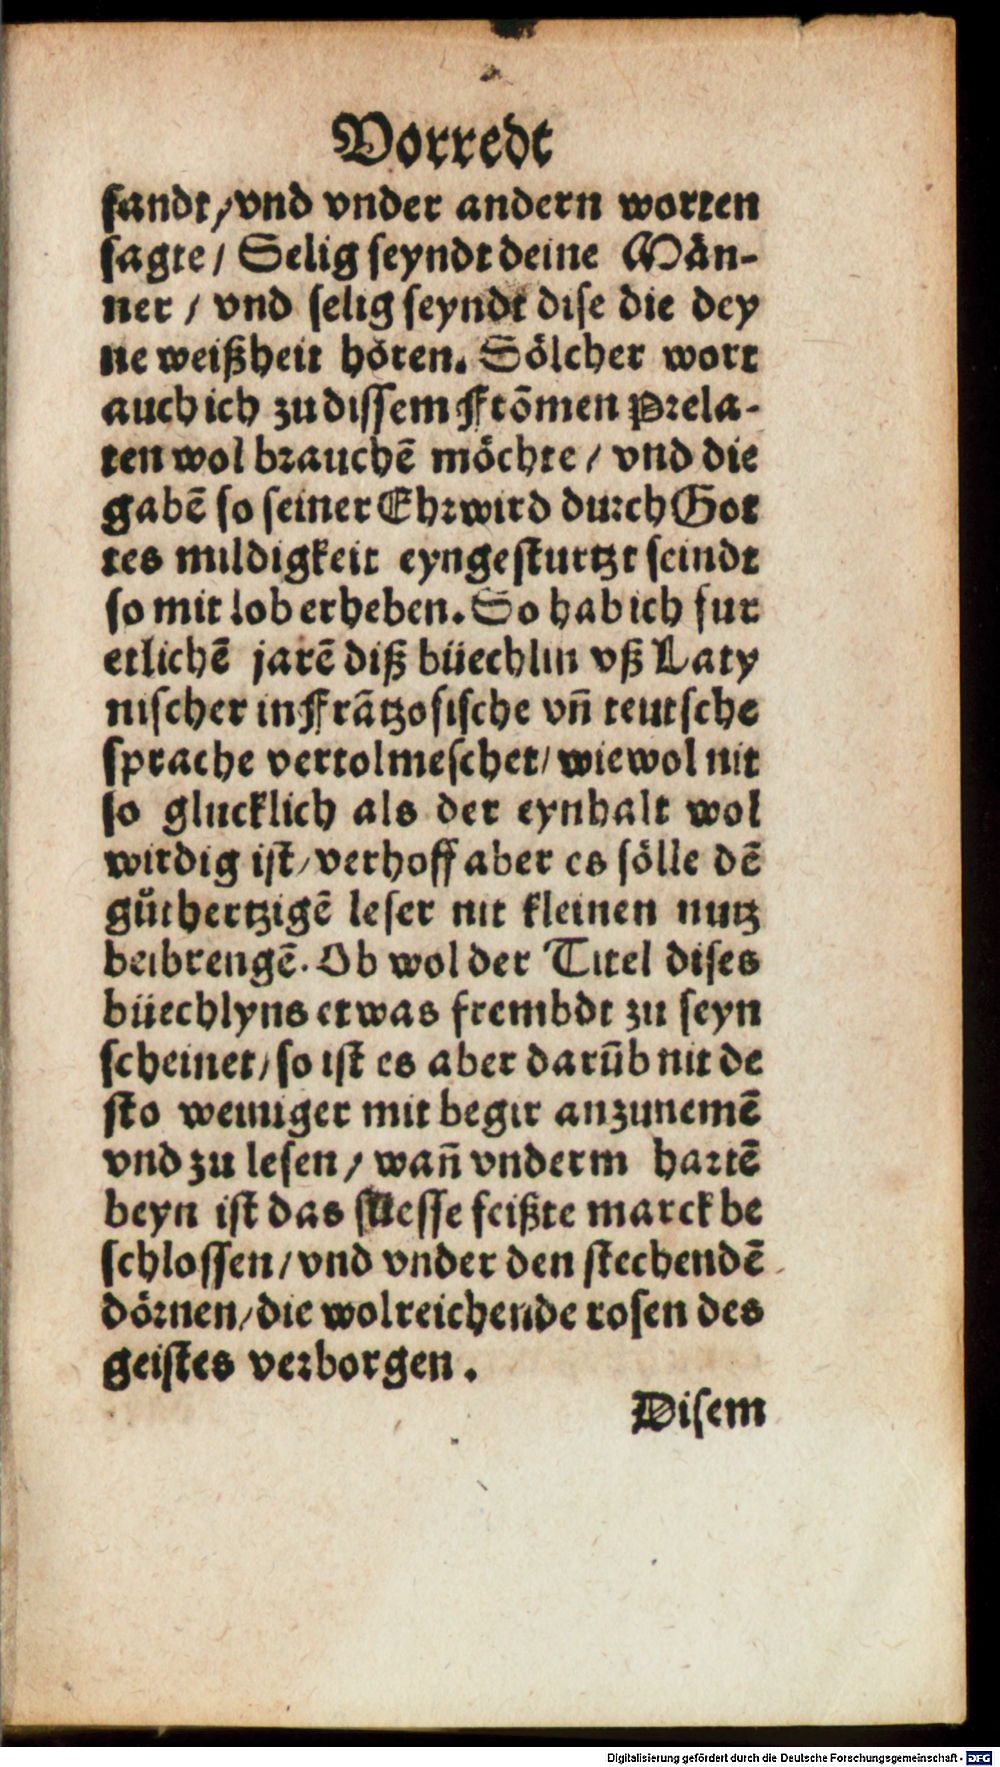 Vorredt
fandt/ vnd vnder andern worten
sagte/ Selig seyndt deine Män-
ner / vnd selig seyndt dise die dey
ne weißheit hören. Sölcher wort
auch ich zu dissem Frōmen Prela-
ten wol brauchē möchte / vnd die
gabē so seiner Ehrwird durch Got
tes mildigkeit eyngesturtzt seindt
so mit lob erheben. So hab ich fur
etlichē jarē diß büechlin vß Laty
nischer in Frātzosische vñ teutsche
sprache vertolmeschet/ wiewol nit
so glucklich als der eynhalt wol
wirdig ist/ verhoff aber es sölle dē
gůthertzigē leser nit kleinen nutz
beibrengē. Ob wol der Titel dises
büechlyns etwas frembdt zu seyn
scheinet/ so ist es aber darūb nit de
sto weniger mit begir anzunemē
vnd zu lesen / wañ vnderm hartē
beyn ist das süesse feißte marck be
schlossen/ vnd vnder den stechendē
dörnen/ die wolreichende rosen des
geistes verborgen.
Disem
Digitalisierung gefördert durch die Deutsche Forschungsgemeinschaft - DFG